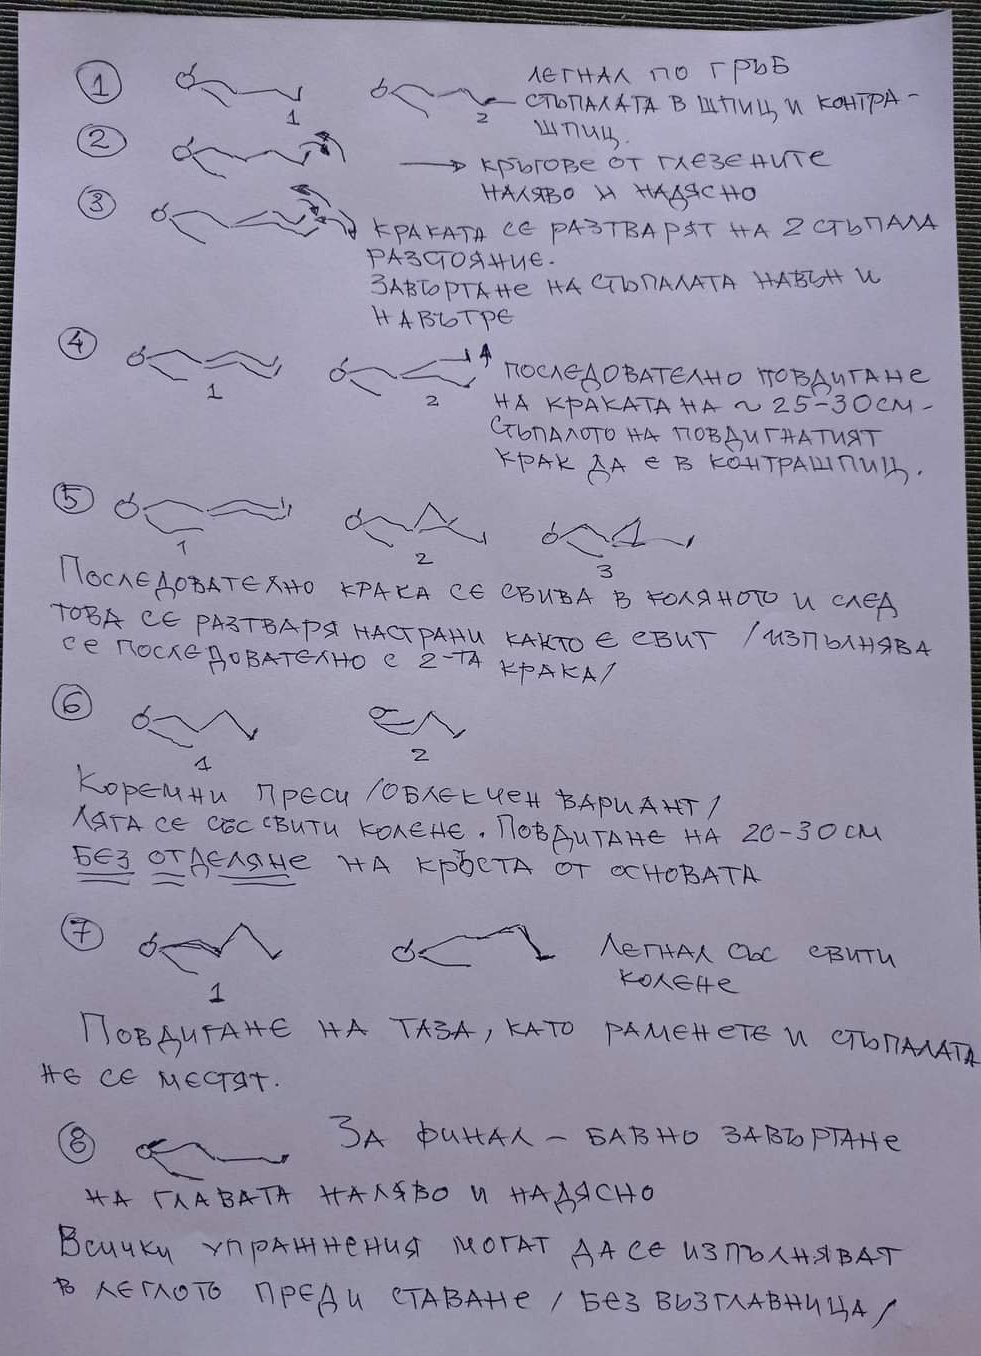 1 ЛЕГНАЛ ПО ГРЪБ
1 2 СТЪПАЛАТА В ШПИЦ И КОНТРА-
ШПИЦ.
2 → КРЪГОВЕ ОТ ГЛЕЗЕНИТЕ
НАЛЯВО И НАДЯСНО
3 КРАКАТА СЕ РАЗТВАРЯТ НА 2 СТЪПАЛА
РАЗСТОЯНИЕ.
ЗАВЪРТАНЕ НА СТЪПАЛАТА НАВЪН И
НАВЪТРЕ
4 1 2 ПОСЛЕДОВАТЕЛНО ПОВДИГАНЕ
НА КРАКАТА НА ~ 25-30СМ -
СТЪПАЛОТО НА ПОВДИГНАТИЯТ
КРАК ДА Е В КОНТРАШПИЦ.
5 1 2 3
ПОСЛЕДОВАТЕЛНО КРАКА СЕ СВИВА В КОЛЯНОТО И СЛЕД
ТОВА СЕ РАЗТВАРЯ НАСТРАНИ КАКТО Е СВИТ /ИЗПЪЛНЯВА
СЕ ПОСЛЕДОВАТЕЛНО С 2-ТА КРАКА/
6 1 2
КОРЕМНИ ПРЕСИ /ОБЛЕКЧЕН ВАРИАНТ/
ЛЯГА СЕ СЪС СВИТИ КОЛЕНЕ. ПОВДИГАНЕ НА 20-30СМ
БЕЗ ОТДЕЛЯНЕ НА КРЪСТА ОТ ОСНОВАТА
7 1 ЛЕГНАЛ СЪС СВИТИ
КОЛЕНЕ
ПОВДИГАНЕ НА ТАЗА, КАТО РАМЕНЕТЕ И СТЪПАЛАТА
НЕ СЕ МЕСТЯТ.
8 ЗА ФИНАЛ - БАВНО ЗАВЪРТАНЕ
НА ГЛАВАТА НАЛЯВО И НАДЯСНО
ВСИЧКИ УПРАЖНЕНИЯ МОГАТ ДА СЕ ИЗПЪЛНЯВАТ
В ЛЕГЛОТО ПРЕДИ СТАВАНЕ /БЕЗ ВЪЗГЛАВНИЦА/